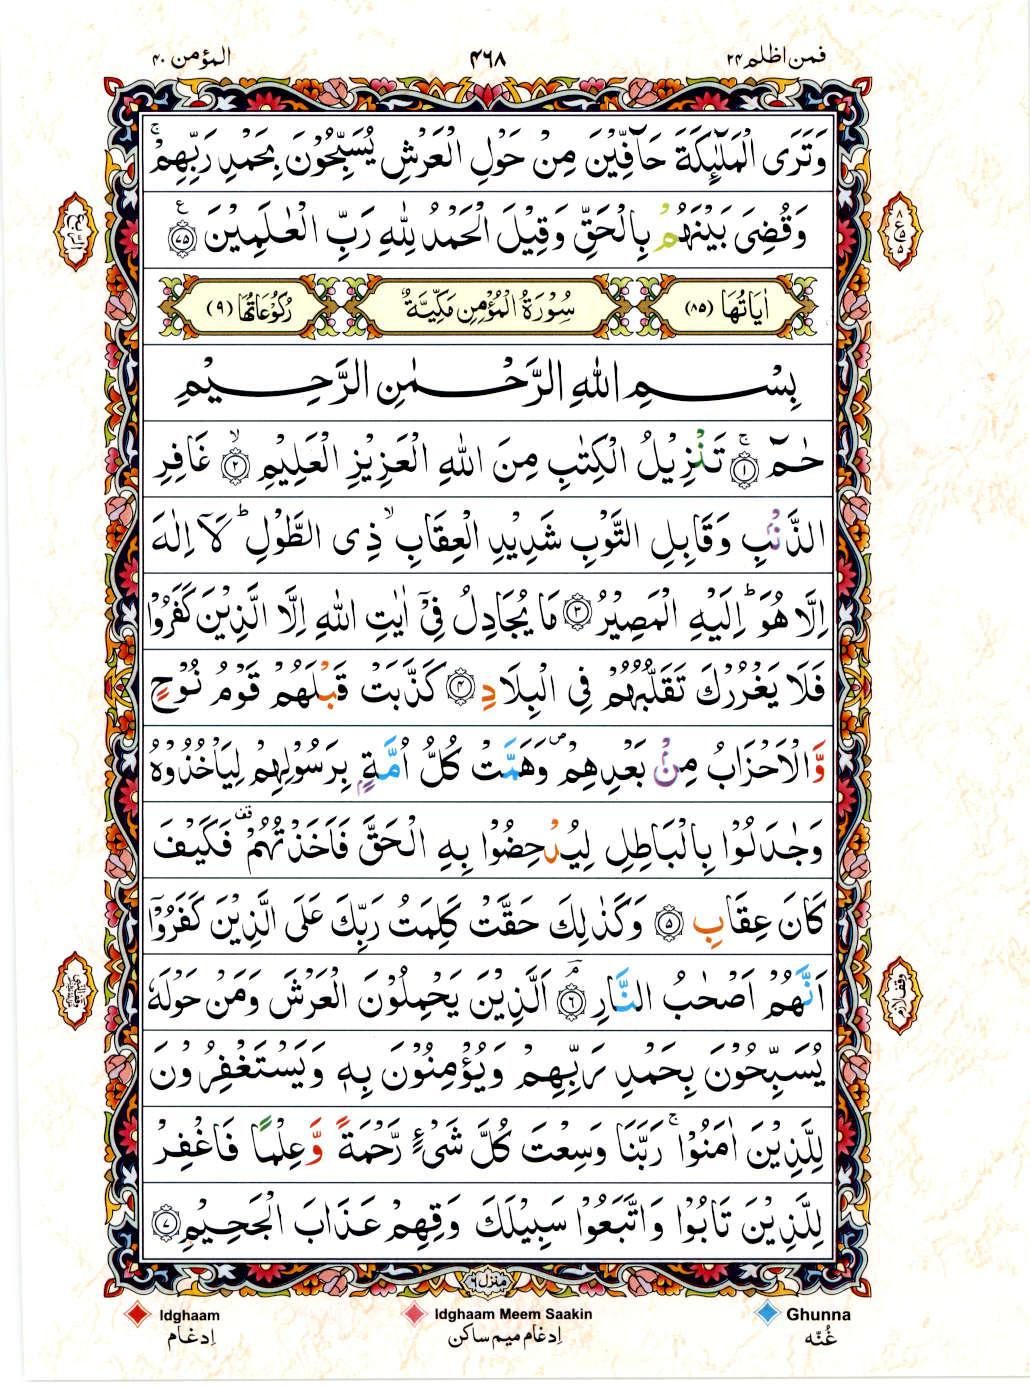 فمن اظلم ۲۴
۴۶۸
المؤمن ۴۰
وَتَرَى الْمَلٰٓئِكَةَ حَآفِّيْنَ مِنْ حَوْلِ الْعَرْشِ يُسَبِّحُوْنَ بِحَمْدِ رَبِّهِمْ ۚ
وَقُضِىَ بَيْنَهُمْ بِالْحَقِّ وَقِيْلَ الْحَمْدُ لِلّٰهِ رَبِّ الْعٰلَمِيْنَ ﴿۷۵﴾ ع
اٰيَاتُهَا (۸۵)
سُوْرَةُ الْمُؤْمِنِ مَكِّيَّةٌ
رُكُوْعَاتُهَا (۹)
بِسْمِ اللّٰهِ الرَّحْمٰنِ الرَّحِيْمِ
حٰمٓ ﴿۱﴾ ۚ تَنْزِيْلُ الْكِتٰبِ مِنَ اللّٰهِ الْعَزِيْزِ الْعَلِيْمِ ﴿۲﴾ ۙ غَافِرِ
الذَّنْۢبِ وَقَابِلِ التَّوْبِ شَدِيْدِ الْعِقَابِ ۙ ذِى الطَّوْلِ ؕ لَاۤ اِلٰهَ
اِلَّا هُوَ ؕ اِلَيْهِ الْمَصِيْرُ ﴿۳﴾ مَا يُجَادِلُ فِىْۤ اٰيٰتِ اللّٰهِ اِلَّا الَّذِيْنَ كَفَرُوْا
فَلَا يَغْرُرْكَ تَقَلُّبُهُمْ فِى الْبِلَادِ ﴿۴﴾ كَذَّبَتْ قَبْلَهُمْ قَوْمُ نُوْحٍ
وَّالْاَحْزَابُ مِنْۢ بَعْدِهِمْ ۖ وَهَمَّتْ كُلُّ اُمَّةٍۢ بِرَسُوْلِهِمْ لِيَاْخُذُوْهُ
وَجٰدَلُوْا بِالْبَاطِلِ لِيُدْحِضُوْا بِهِ الْحَقَّ فَاَخَذْتُهُمْ قف فَكَيْفَ
كَانَ عِقَابِ ﴿۵﴾ وَكَذٰلِكَ حَقَّتْ كَلِمَتُ رَبِّكَ عَلَى الَّذِيْنَ كَفَرُوْۤا
اَنَّهُمْ اَصْحٰبُ النَّارِ ﴿۶﴾ ۘ اَلَّذِيْنَ يَحْمِلُوْنَ الْعَرْشَ وَمَنْ حَوْلَهٗ
يُسَبِّحُوْنَ بِحَمْدِ رَبِّهِمْ وَيُؤْمِنُوْنَ بِهٖ وَيَسْتَغْفِرُوْنَ
لِلَّذِيْنَ اٰمَنُوْا ۚ رَبَّنَا وَسِعْتَ كُلَّ شَىْءٍ رَّحْمَةً وَّعِلْمًا فَاغْفِرْ
لِلَّذِيْنَ تَابُوْا وَاتَّبَعُوْا سَبِيْلَكَ وَقِهِمْ عَذَابَ الْجَحِيْمِ ﴿۷﴾
الربع
وقف لازم
منزل ۶
Idghaam
Idghaam Meem Saakin
Ghunna
اِدغام
اِدغام میم ساکن
غُنّه